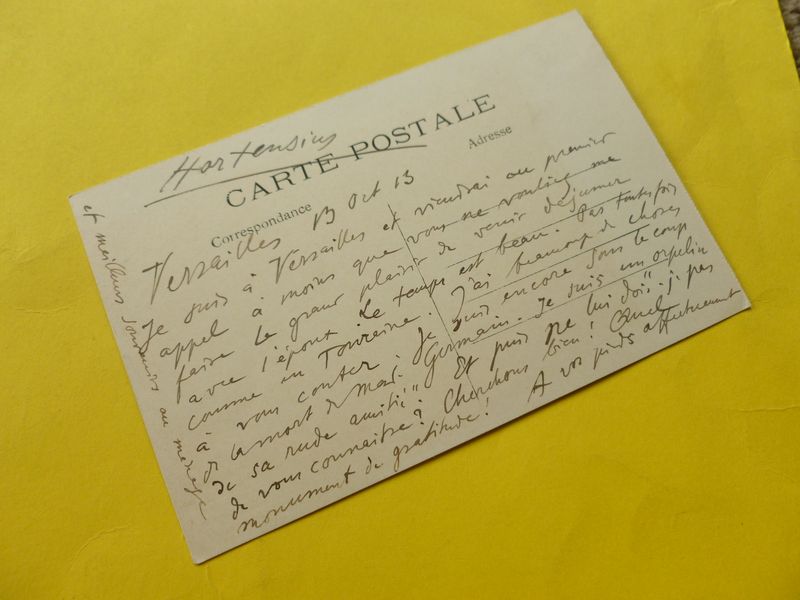 Hortensius
CARTE POSTALE
Correspondance
Adresse
Versailles 13 Oct 13
Je suis à Versailles et viendrai au premier
appel à moins que vous ne vouliez me
faire le grand plaisir de venir déjeuner
avec l'époux. Le temps est beau. Pas toutefois
comme en Touraine. J'ai beaucoup de choses
à vous conter. Je suis encore sous le coup
de la mort de Germain. Je suis un orphelin
de sa rude amitié. Et puis ne lui dois-je pas
de vous connaître? Cherchons bien! Quel
monument de gratitude! A vos pieds affectueusement
et meilleurs souvenirs au ménage